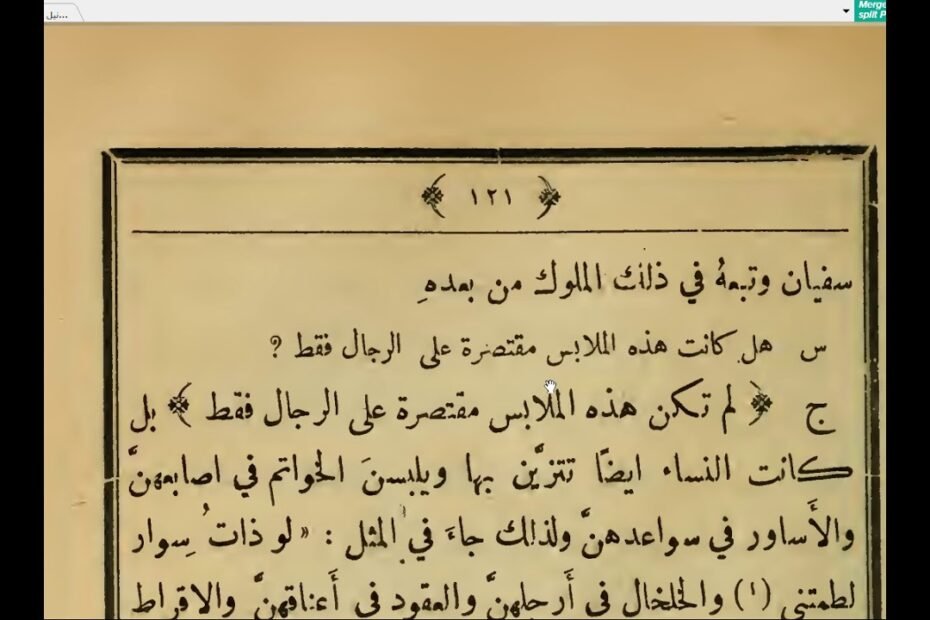 نيل...
Merge
split P
﴿ ١٢١ ﴾
سفيان وتبعهُ في ذلك الملوك من بعدهِ
س هل كانت هذه الملابس مقتصرة على الرجال فقط ؟
ج ﴿ لم تكن هذه الملابس مقتصرة على الرجال فقط ﴾ بل
كانت النساء ايضًا تتزيَّن بها ويلبسنَ الخواتم في اصابعهنَّ
والأَساور في سواعدهنَّ ولذلك جاءَ في المثل : « لو ذاتُ سِوار
لطمتني (١) والخلخال في أَرجلهنَّ والعقود في أَعناقهنَّ والاقراط